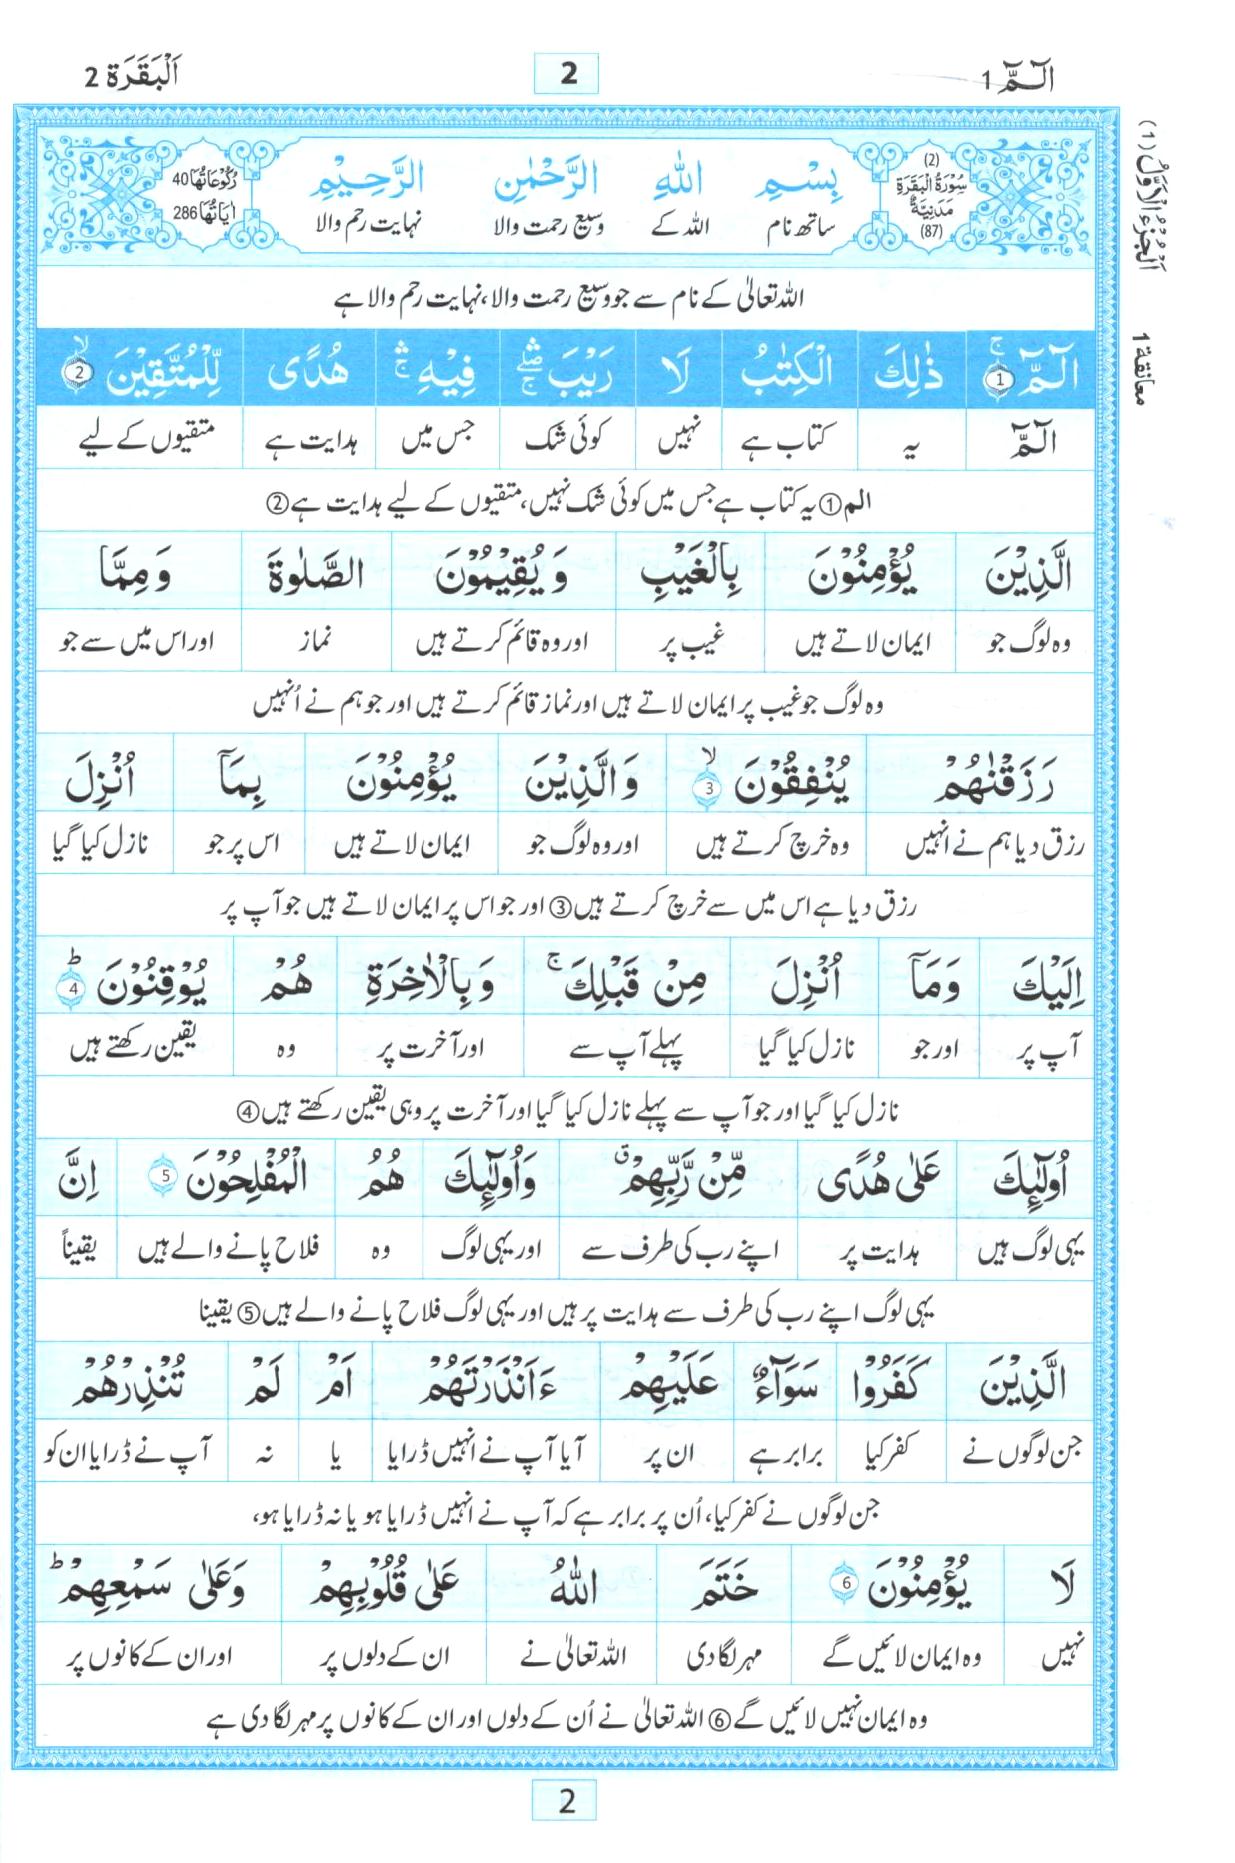 الٓمّٓ 1
2
اَلْبَقَرَة 2
اَلْجُزْءُ الْاَوَّلُ (1)
معانقة 1
(2)
سُوْرَةُ الْبَقَرَةِ
مَدَنِيَّةٌ
(87)
بِسْمِ اللّٰهِ الرَّحْمٰنِ الرَّحِيْمِ
ساتھ نام اللہ کے وسیع رحمت والا نہایت رحم والا
رُكُوْعَاتُهَا 40
اٰيَاتُهَا 286
اللہ تعالیٰ کے نام سے جو وسیع رحمت والا، نہایت رحم والا ہے
الٓمّٓ ۚ 1 ذٰلِكَ الْكِتٰبُ لَا رَيْبَ ۛۖۚ فِيْهِ ۛۚ هُدًى لِّلْمُتَّقِيْنَ ۙ 2
الٓمّٓ یہ کتاب ہے نہیں کوئی شک جس میں ہدایت ہے متقیوں کے لیے
الم ① یہ کتاب ہے جس میں کوئی شک نہیں، متقیوں کے لیے ہدایت ہے ②
الَّذِيْنَ يُؤْمِنُوْنَ بِالْغَيْبِ وَ يُقِيْمُوْنَ الصَّلٰوةَ وَ مِمَّا
وہ لوگ جو ایمان لاتے ہیں غیب پر اور وہ قائم کرتے ہیں نماز اور اس میں سے جو
وہ لوگ جو غیب پر ایمان لاتے ہیں اور نماز قائم کرتے ہیں اور جو ہم نے اُنہیں
رَزَقْنٰهُمْ يُنْفِقُوْنَ ۙ 3 وَ الَّذِيْنَ يُؤْمِنُوْنَ بِمَآ اُنْزِلَ
رزق دیا ہم نے انہیں وہ خرچ کرتے ہیں اور وہ لوگ جو ایمان لاتے ہیں اس پر جو نازل کیا گیا
رزق دیا ہے اس میں سے خرچ کرتے ہیں ③ اور جو اس پر ایمان لاتے ہیں جو آپ پر
اِلَيْكَ وَ مَآ اُنْزِلَ مِنْ قَبْلِكَ ۚ وَ بِالْاٰخِرَةِ هُمْ يُوْقِنُوْنَ ؕ 4
آپ پر اور جو نازل کیا گیا پہلے آپ سے اور آخرت پر وہ یقین رکھتے ہیں
نازل کیا گیا اور جو آپ سے پہلے نازل کیا گیا اور آخرت پر وہی یقین رکھتے ہیں ④
اُولٰٓئِكَ عَلٰى هُدًى مِّنْ رَّبِّهِمْ ۗ وَ اُولٰٓئِكَ هُمُ الْمُفْلِحُوْنَ 5 اِنَّ
یہی لوگ ہیں ہدایت پر اپنے رب کی طرف سے اور یہی لوگ وہ فلاح پانے والے ہیں یقیناً
یہی لوگ اپنے رب کی طرف سے ہدایت پر ہیں اور یہی لوگ فلاح پانے والے ہیں ⑤ یقینا
الَّذِيْنَ كَفَرُوْا سَوَآءٌ عَلَيْهِمْ ءَاَنْذَرْتَهُمْ اَمْ لَمْ تُنْذِرْهُمْ
جن لوگوں نے کفر کیا برابر ہے ان پر آیا آپ نے انہیں ڈرایا یا نہ آپ نے ڈرایا ان کو
جن لوگوں نے کفر کیا، اُن پر برابر ہے کہ آپ نے انہیں ڈرایا ہو یا نہ ڈرایا ہو،
لَا يُؤْمِنُوْنَ 6 خَتَمَ اللّٰهُ عَلٰى قُلُوْبِهِمْ وَ عَلٰى سَمْعِهِمْ ؕ
نہیں وہ ایمان لائیں گے مہر لگا دی اللہ تعالیٰ نے ان کے دلوں پر اور ان کے کانوں پر
وہ ایمان نہیں لائیں گے ⑥ اللہ تعالیٰ نے اُن کے دلوں اور ان کے کانوں پر مہر لگا دی ہے
2